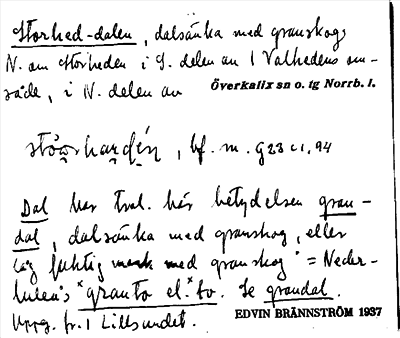 Storhed-dalen, dalsänka med granskog,
N. om Storheden i S. delen av 1 Valhedens om-
råde, i N. delen av Överkalix sn o. tg Norrb. l.
bf. m. G23 c1, 94
Dal har trol. här betydelsen gran-
dal, dalsänka med granskog, eller
låg fuktig mark med granskog" = Neder-
luleå's *granto el. *to. Se grandal.
Uppg. fr. 1 Lillsundet. EDVIN BRÄNNSTRÖM 1937